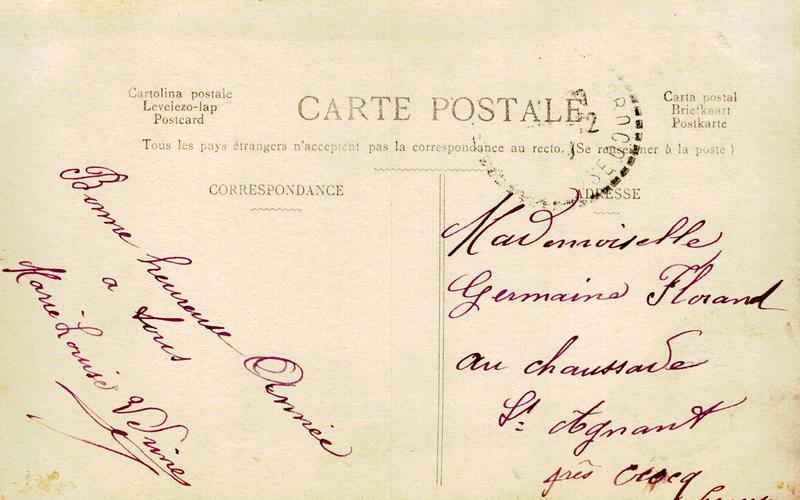 Cartolina postale
Levelezo-lap
Postcard
CARTE POSTALE
Carta postal
Briefkaart
Postkarte
Tous les pays étrangers n'acceptent pas la correspondance au recto. (Se renseigner à la poste)
CORRESPONDANCE
ADRESSE
Bonne heureuse Année
a tous
Marie Louise
Mademoiselle
Germaine Florand
au chaussade
St Agnant
près Crocq